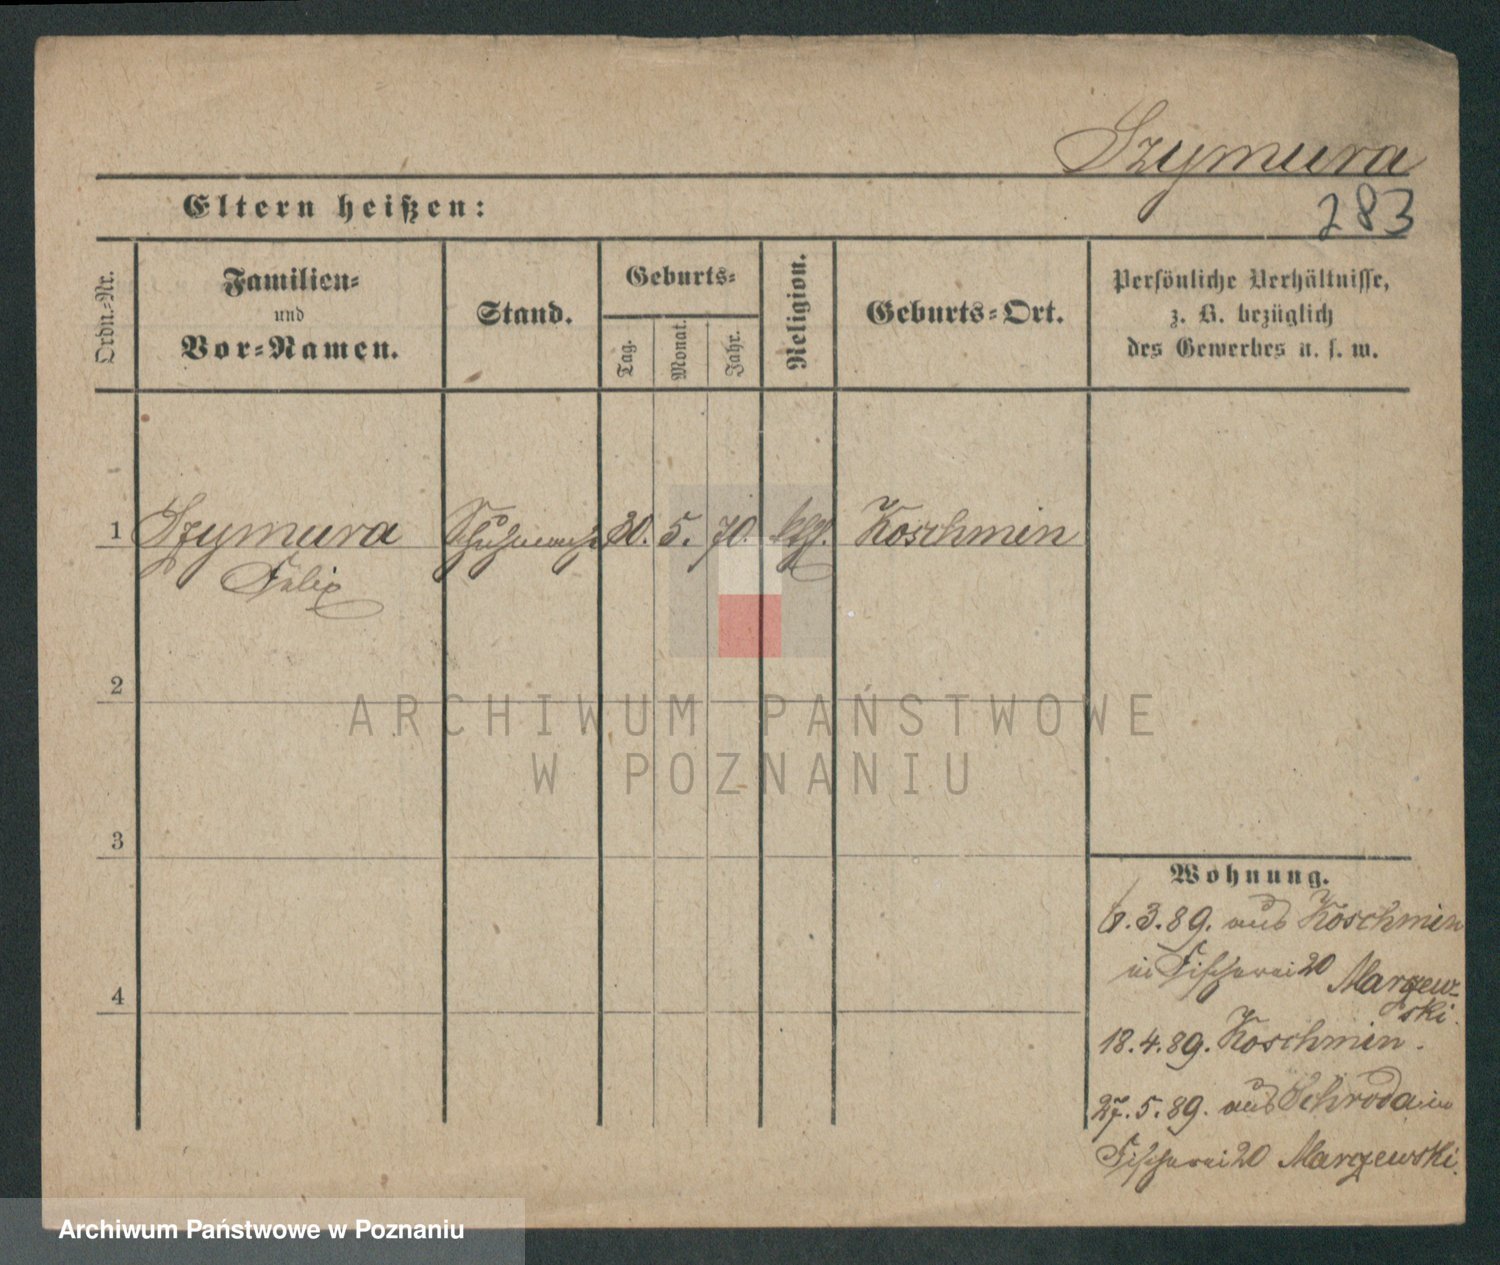 Szymura
283
Eltern heißen:
Ordn.-Nr.
Familien-
und
Vor-Namen.
Stand.
Geburts-
Tag.
Monat.
Jahr.
Religion.
Geburts-Ort.
Persönliche Verhältnisse,
z. B. bezüglich
des Gewerbes u. s. w.
1 Szymura Schuhmacher 30. 5. 70. ktl. Koschmin
Felix
2
3
4
Wohnung.
6.3.89. aus Koschmin
in Fischerei 20 Margew-
ski.
18.4.89. Koschmin.
27.5.89. aus Schroda in
Fischerei 20 Margewski.
ARCHIWUM PAŃSTWOWE
W POZNANIU
Archiwum Państwowe w Poznaniu